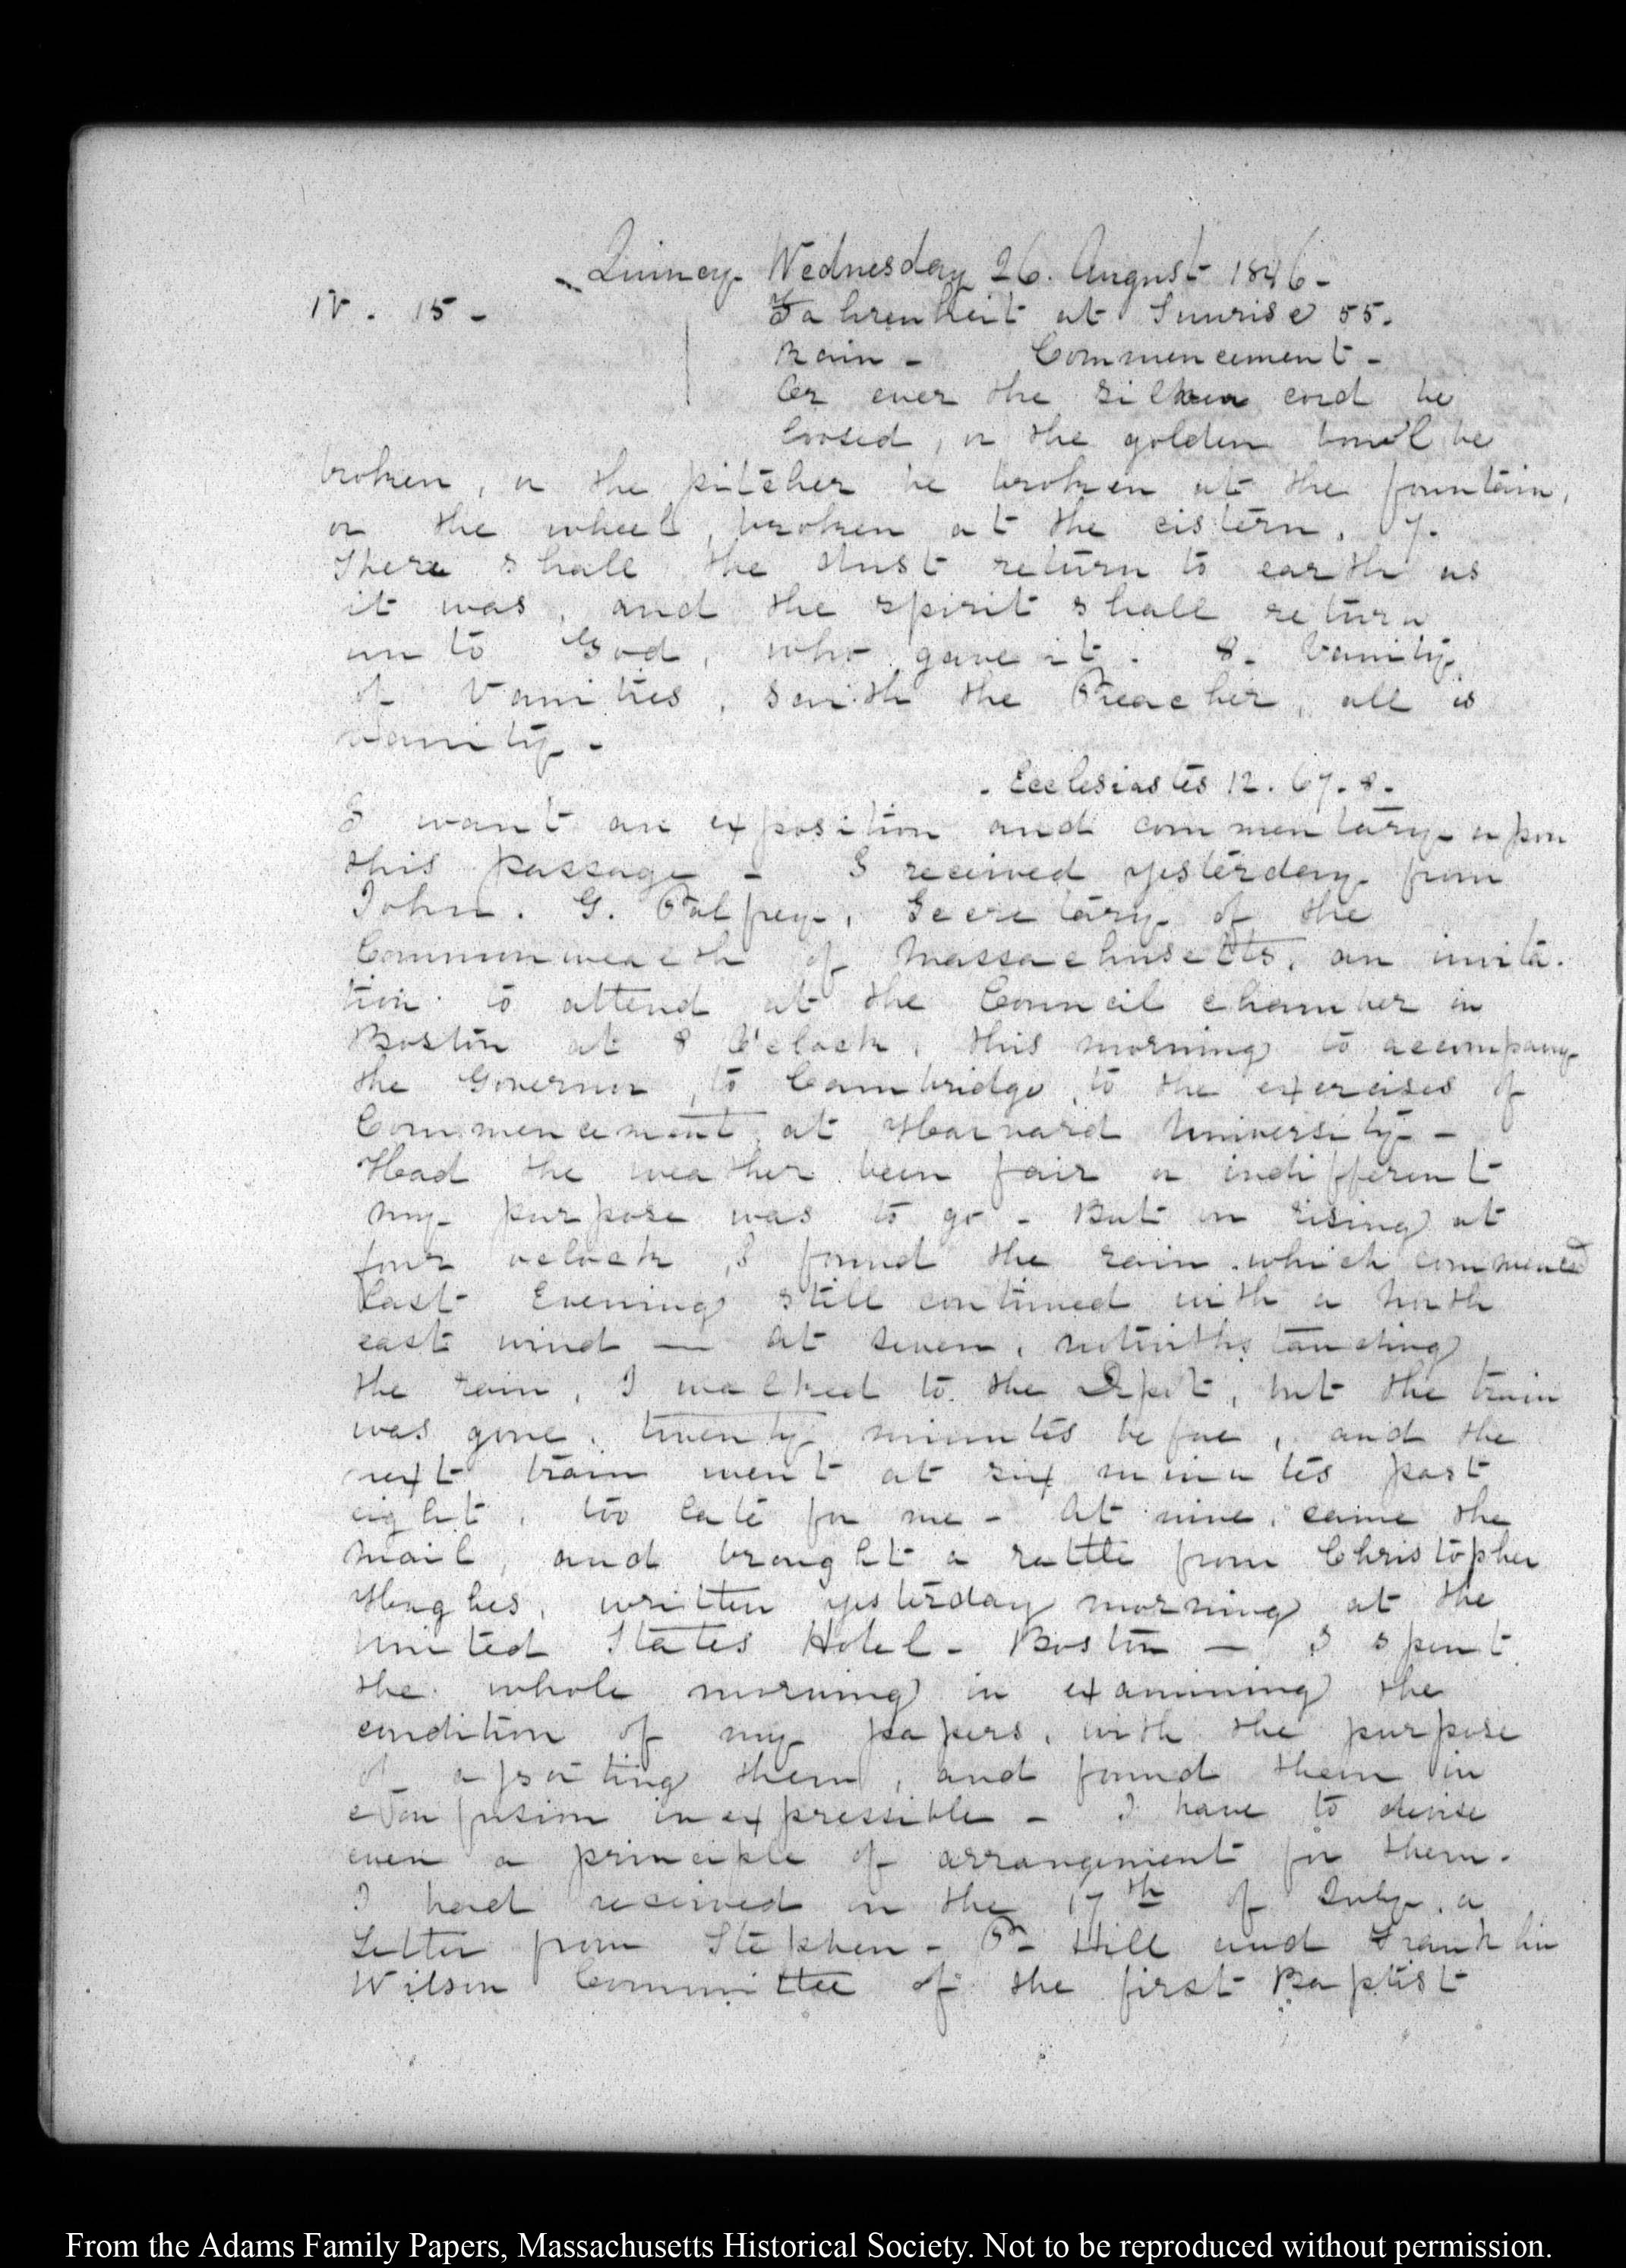 Quincy Wednesday 26. August 1846-
IV. 15-
Fahrenheit at Sunrise 55.
Rain - Commencement-
Or ever the silken cord be
loosed, or the golden bowl be
broken, or the pitcher be broken at the fountain,
or the wheel, broken at the cistern. 7.
There shall the dust return to earth as
it was, and the spirit shall return
unto God, who gave it. 8. Vanity
of Vanities, saith the Preacher, all is
vanity-
- Ecclesiastes 12. 67. 8.
I want an exposition and commentary upon
this passage - I received yesterday from
John. G. Palfrey, Secretary of the
Commonwealth of Massachusetts, an invita-
tion to attend at the Council chamber in
Boston at 8 O'clock, this morning to accompany
the Governor, to Cambridge, to the exercises of
Commencement at Harvard University -
Had the weather been fair or indifferent
my purpose was to go - But on rising at
four oclock, I found the rain which commenced
last Evening still continued with a North
east wind — At seven, notwithstanding
the rain, I walked to the Depot, but the train
was gone, twenty minutes before, and the
next train went at six minutes past
eight, too late for me - At nine, came the
mail, and brought a rattle from Christopher
Hughes, written yesterday morning at the
United States Hotel - Boston — I spent
the whole morning in examining the
condition of my papers, with the purpose
of assorting them, and found them in
confusion inexpressible - I have to devise
even a principle of arrangement for them.
I had received on the 17th of July, a
Letter from Stephen - P- Hill and Franklin
Wilson Committee of the first Baptist
From the Adams Family Papers, Massachusetts Historical Society. Not to be reproduced without permission.